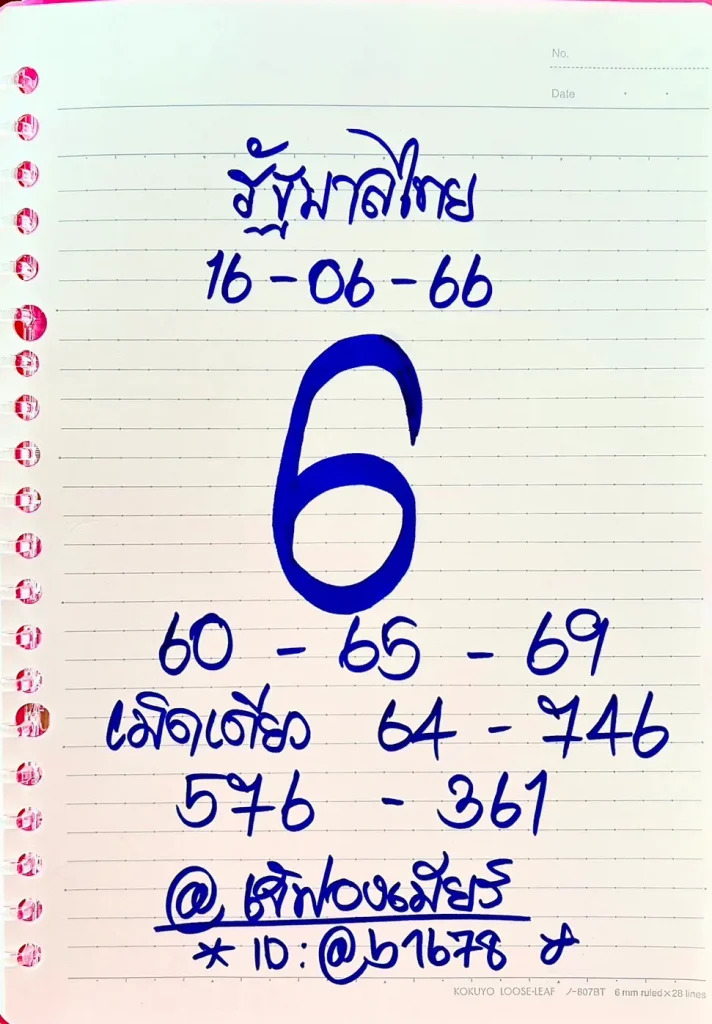 No.
Date
รัฐบาลไทย
16-06-66
6
60 - 65 - 69
เม็ดเดียว 64 - 746
576 - 361
@ เจ๊ฟองเบียร์
* ID: @b1678
KOKUYO LOOSE-LEAF ノ-807BT 6 mm ruled×28 lines